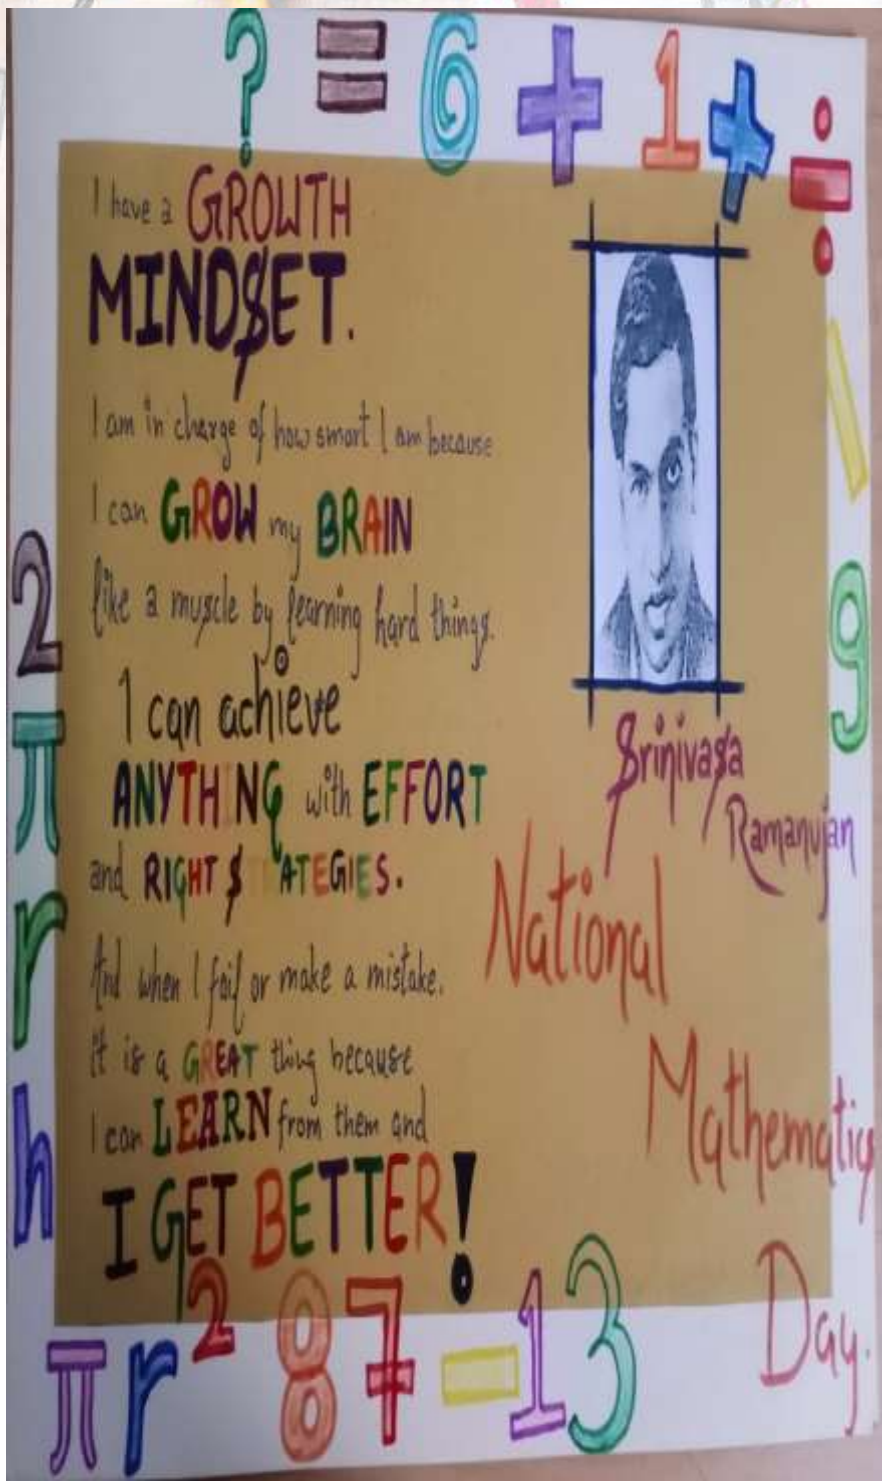 ? = 6 + 1 + ÷
I have a GROWTH
MINDSET.
I am in charge of how smart I am because
I can GROW my BRAIN
like a muscle by learning hard things.
I can achieve
ANYTHING with EFFORT
and RIGHT STRATEGIES.
And when I fail or make a mistake.
It is a GREAT thing because
I can LEARN from them and
I GET BETTER!
Srinivasa
Ramanujan
National
Mathematics
Day.
2πrh
πr² 87-13
\ 9